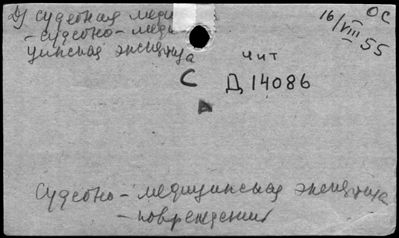 Д) Судебная меди
ОС
16/VIII 55
- судебно - меди
цинская экспертиза
чит
С Д 14086
Судебно - медицинская экспертиза
- повреждения